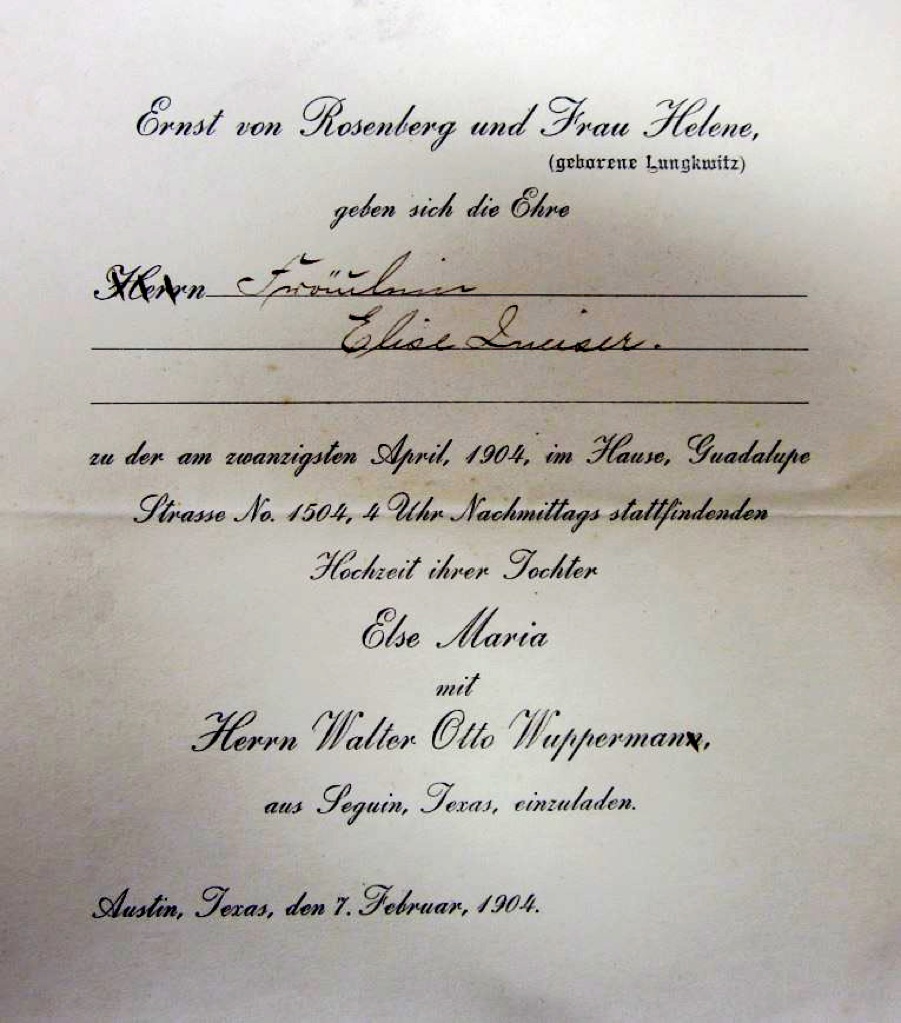 Ernst von Rosenberg und Frau Helene,
(geborene Lungkwitz)
geben sich die Ehre
Herrn Fräulein
Elise
zu der am zwanzigsten April, 1904, im Hause, Guadalupe
Strasse No. 1504, 4 Uhr Nachmittags stattfindenden
Hochzeit ihrer Tochter
Else Maria
mit
Herrn Walter Otto Wuppermann,
aus Seguin, Texas, einzuladen.
Austin, Texas, den 7. Februar, 1904.